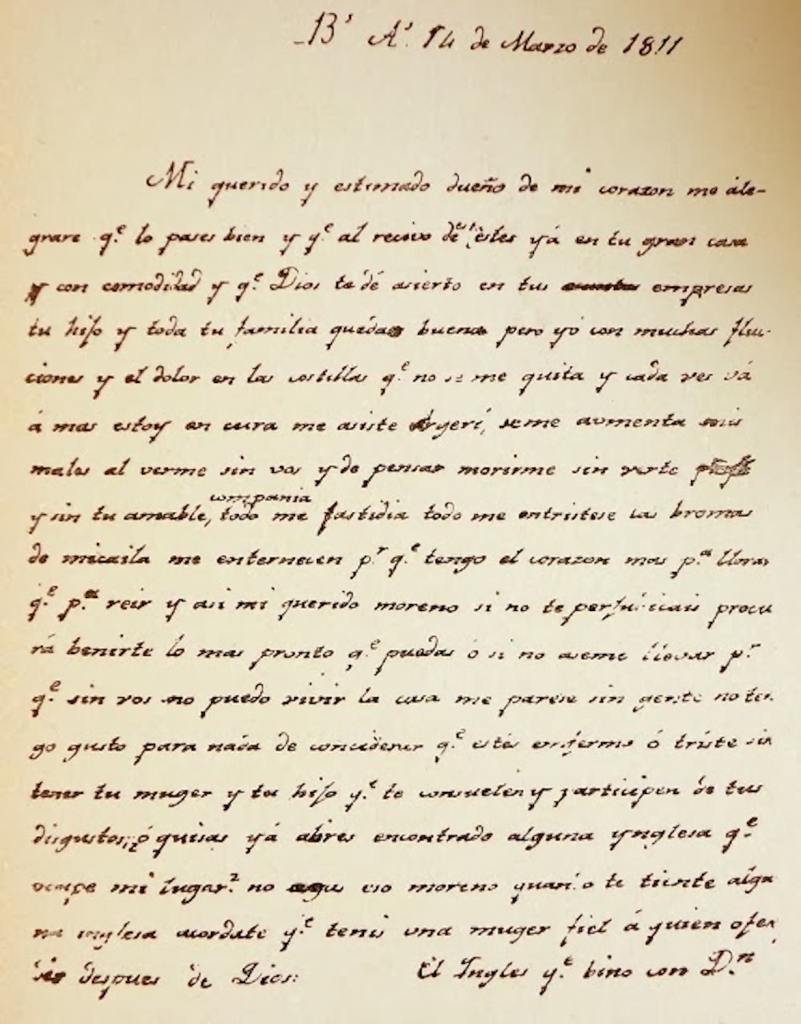 Bˢ Aˢ 14 de Marzo de 1811
Mi querido y estimado dueño de mi corazon me ale-
grare qᵉ lo pases bien y qᵉ al recivo de esta estes yá en tu gran casa
y con comodidad y qᵉ Dios te dé asierto en tus empresas
tu hijo y toda tu familia quedan buenos pero yó con muchas flu-
ciones y el dolor en las costillas qᵉ no se me quita y cada ves vá
á mas estoy en cura me asiste Argerí, se me aumenta mis
males al verme sin vos y de pensar morirme sin verte
y sin tu amable, compania todo me fastidia todo me entristese las bromas
de micaila me enternecen pʳ qᵉ tengo el corazon mas pᵃ llorar
qᵉ pᵃ reir y asi mi querido moreno si no te perjuicias procu
rá benirte lo mas pronto qᵉ puedas ó si no aseme llevar pʳ
qᵉ sin vos no puedo vivir la casa me parese sin gente no ten
go gusto para nada de considerar qᵉ estes enfermo ó triste sin
tener tu muger y tu hijo qᵉ te consuelen y participen de tus
disgustos; ó quisas yá abres encontrado alguna ynglesa qᵉ
ocupe mi lugar? no agas eso moreno quando te tiente algu
na inglesa acordate qᵉ tenes una muger fiel á quien ofen
des despues de Dios: El Ingles qᵉ bino con Dⁿ